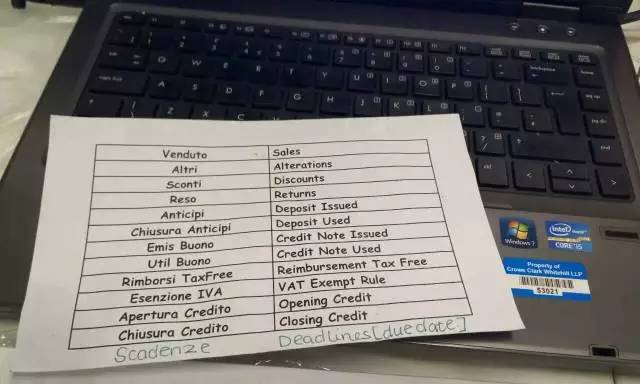 Venduto Sales
Altri Alterations
Sconti Discounts
Reso Returns
Anticipi Deposit Issued
Chiusura Anticipi Deposit Used
Emis Buono Credit Note Issued
Util Buono Credit Note Used
Rimborsi TaxFree Reimbursement Tax Free
Esenzione IVA VAT Exempt Rule
Apertura Credito Opening Credit
Chiusura Credito Closing Credit
Scadenze Deadlines [due date]
Windows 7
intel
CORE i5
Property of
Crowe Clark Whitehill LLP
53021